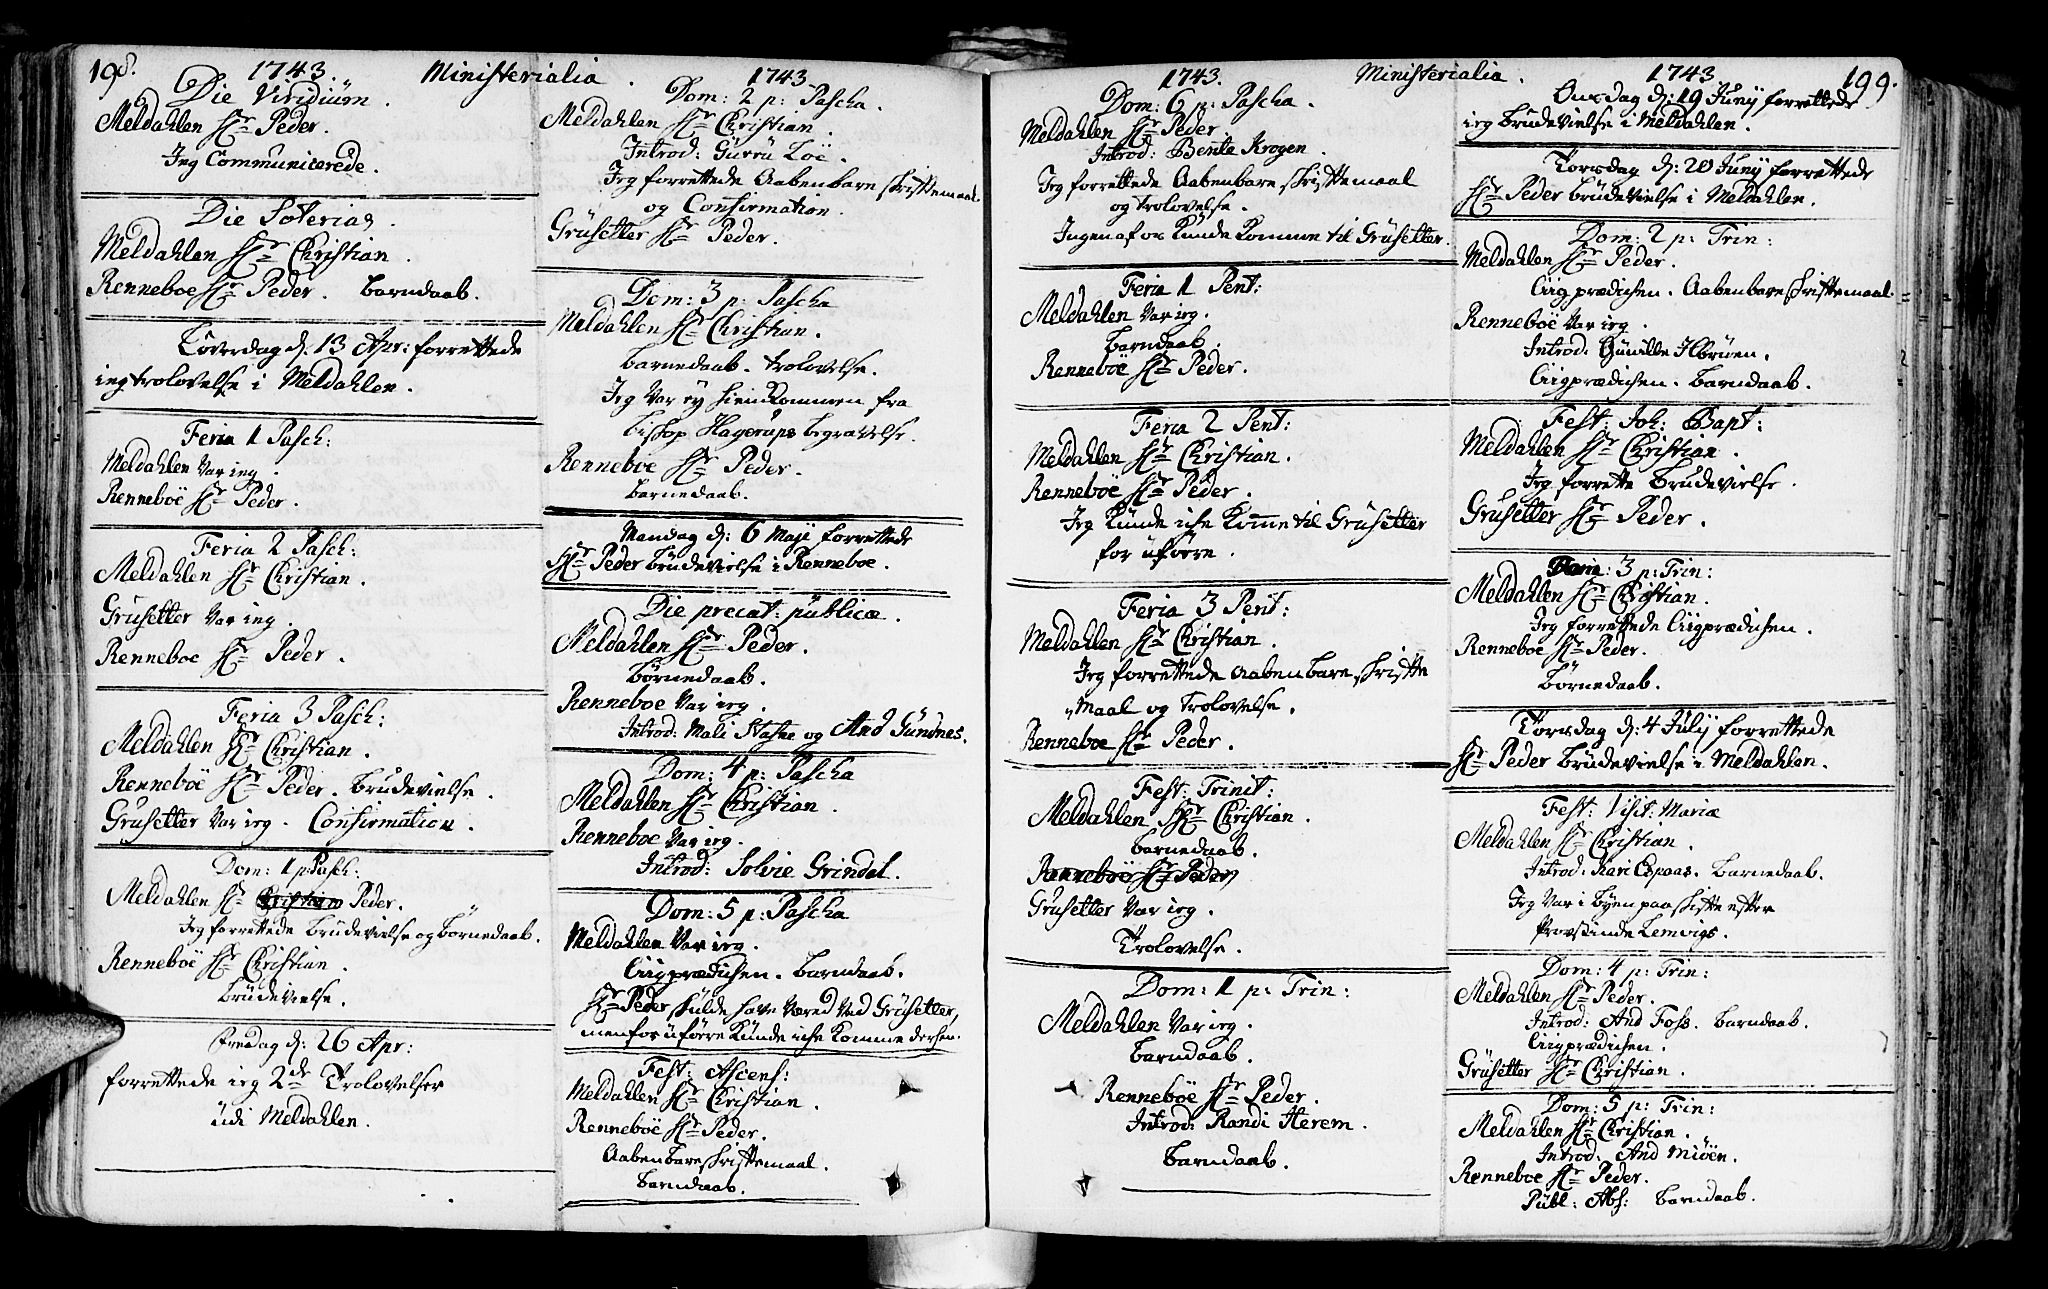 198.
1743. Ministerialia. 1743
Die Viridium.
Meldahlen Hr Peder.
Jeg Communicerede.
Die Soterias.
Meldahlen Hr Christian.
Renneboe Hr Peder. barndaab.
Løverdag d: 13 Apr: forrettede
ieg trolovelse i Meldahlen.
Feria 1 Pasch:
Meldahlen Var ieg.
Renneboe Hr Peder.
Feria 2 Pasch:
Meldahlen Hr Christian.
Grusetter Var ieg.
Renneboe Hr Peder.
Feria 3 Pasch:
Meldahlen Hr Christian.
Renneboe Hr Peder. Brudevielse.
Grusetter Var ieg. Confirmation.
Dom: 1 p: Pasch:
Meldahlen Hr Christian Peder.
Jeg forrettede Brudevielse og Børnedaab.
Renneboe Hr Christian.
Brudevielse.
Fredag d: 26 Apr:
forrettede ieg 2de Trolovelser
udi Meldahlen.
Dom: 2 p: Pascha.
Meldahlen Hr Christian.
Introd: Gurru Loe.
Jeg forrettede Aabenbare skriftemaal
og Confirmation.
Grusetter Hr Peder.
Dom: 3 p: Pascha
Meldahlen Hr Christian.
barnedaab. trolovelse.
Jeg Var ey hiemkommen fra
Biskop Hagerups begravelse.
Renneboe Hr Peder.
barnedaab.
Mandag d: 6 Maji forrettede
Hr Peder brudevielse i Renneboe.
Die precat: publicæ.
Meldahlen Hr Peder.
Børnedaab.
Renneboe Var ieg.
Introd: Mali Stafne og And Gundnes.
Dom: 4 p: Pascha
Meldahlen Hr Christian.
Renneboe Var ieg.
Introd: Solvie Grindal.
Dom: 5 p: Pascha
Meldahlen Var ieg.
Liigprædichen. barndaab.
Hr Peder skulde have Væred Ved Grusetter,
men for uføre Kunde iche Komme dersen.
Fest: Ascens:
Meldahlen Hr Christian.
Renneboe Hr Peder.
Aabenbare skriftemaal.
barndaab.
1743. Ministerialia. 1743 199.
Dom: 6 p: Pascha.
Meldahlen Hr Peder
Introd: Bente Krogen.
Jeg forrettede Aabenbare skriftemaal
og trolovelse.
Ingen af os Kunde Komme til Grusetter.
Feria 1 Pent:
Meldahlen Var ieg.
barndaab.
Renneboe Hr Peder.
Feria 2 Pent:
Meldahlen Hr Christian.
Renneboe Hr Peder.
Jeg Kunde iche Komme til Grusetter
for uføre.
Feria 3 Pent:
Meldahlen Hr Christian.
Jeg forrettede Aabenbare skrifte
maal og trolovelse.
Renneboe Hr Peder.
Fest: Trinit:
Meldahlen Hr Christian.
barnedaab.
Renneboe Hr Peder
Grusetter Var ieg.
Trolovelse.
Dom: 1 p: Trin:
Meldahlen Var ieg.
barndaab.
Renneboe Hr Peder.
Introd: Randi Herem.
barndaab.
Onsdag d: 19 Junij forrettede
ieg brudevielse i Meldahlen.
Torsdag d: 20 Junij forrettede
Hr Peder brudevielse i Meldahlen.
Dom: 2 p: Trin:
Meldahlen Hr Peder.
Liigprædichen. Aabenbare skriftemaal.
Renneboe Var ieg.
Introd: Gunilde Ilbruen.
Liigprædichen. Barndaab.
Fest: Joh: Bapt:
Meldahlen Hr Christian.
Jeg forrette Brudevielse.
Grusetter Hr Peder.
Dom: 3 p: Trin:
Meldahlen Hr Christian.
Jeg forrettede Liigprædichen.
Renneboe Hr Peder.
Børnedaab.
Torsdag d: 4 Julij forrettede
Hr Peder Brudevielse i Meldahlen.
Fest: Visit: Mariæ
Meldahlen Hr Christian.
Introd: Kari Espaas. Barnedaab.
Jeg Var i Byen paa skifte efter
Provstinde Lemvigs.
Dom: 4 p: Trin:
Meldahlen Hr Peder.
Introd: And Foss. barndaab.
Liigprædichen.
Grusetter Hr Christian.
Dom: 5 p: Trin:
Meldahlen Hr Christian.
Introd: And Mioen.
Renneboe Hr Peder.
Publ: Abs: barndaab.